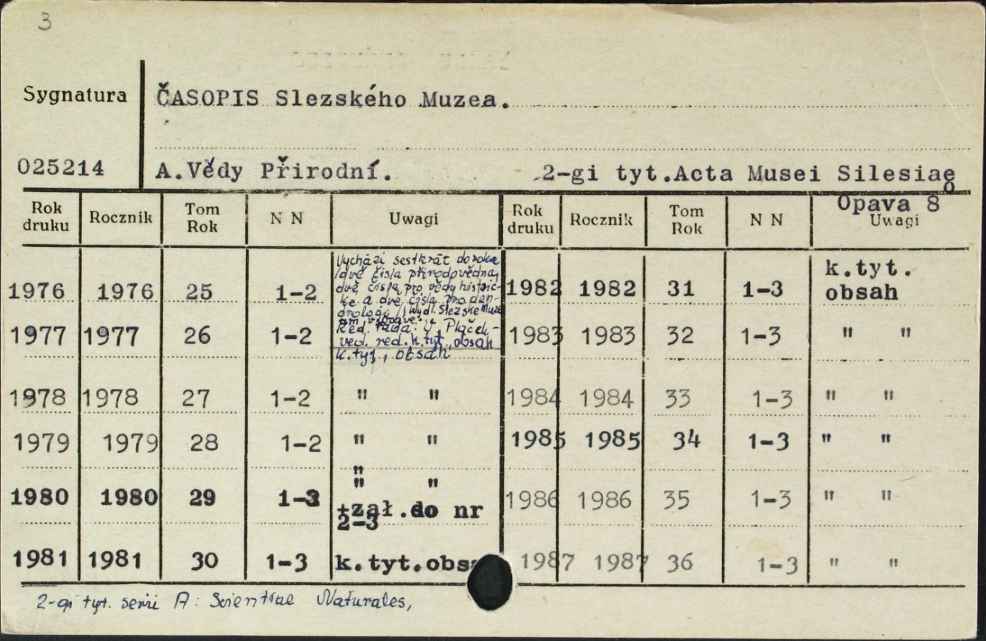 3
Sygnatura ČASOPIS Slezského Muzea.
025214 A.Vědy Přirodní. 2-gi tyt.Acta Musei Silesiae
Opava 8
Rok druku Rocznik Tom Rok N N Uwagi Rok druku Rocznik Tom Rok N N Uwagi
Vychází šestkrát do roka
/dvě čísla přírodovědná,
dvě čísla pro vědy historic-
ké a dvě čísla pro den-
drologii/ Wydl. Slezské Muze
um v Opavě.
Red. rada: J. Plaček-
ved. red. k.tyt. obsah
k.tyt, obsah
1976 1976 25 1-2 1982 1982 31 1-3 k.tyt. obsah
1977 1977 26 1-2 1983 1983 32 1-3 " "
1978 1978 27 1-2 " " 1984 1984 33 1-3 " "
1979 1979 28 1-2 " " 1985 1985 34 1-3 " "
"
" "
1980 1980 29 1-3 +zał.do nr 1986 1986 35 1-3 " "
2-3
1981 1981 30 1-3 k.tyt.obsa 1987 1987 36 1-3 " "
2-gi tyt. serii A: Scientiae Naturales,